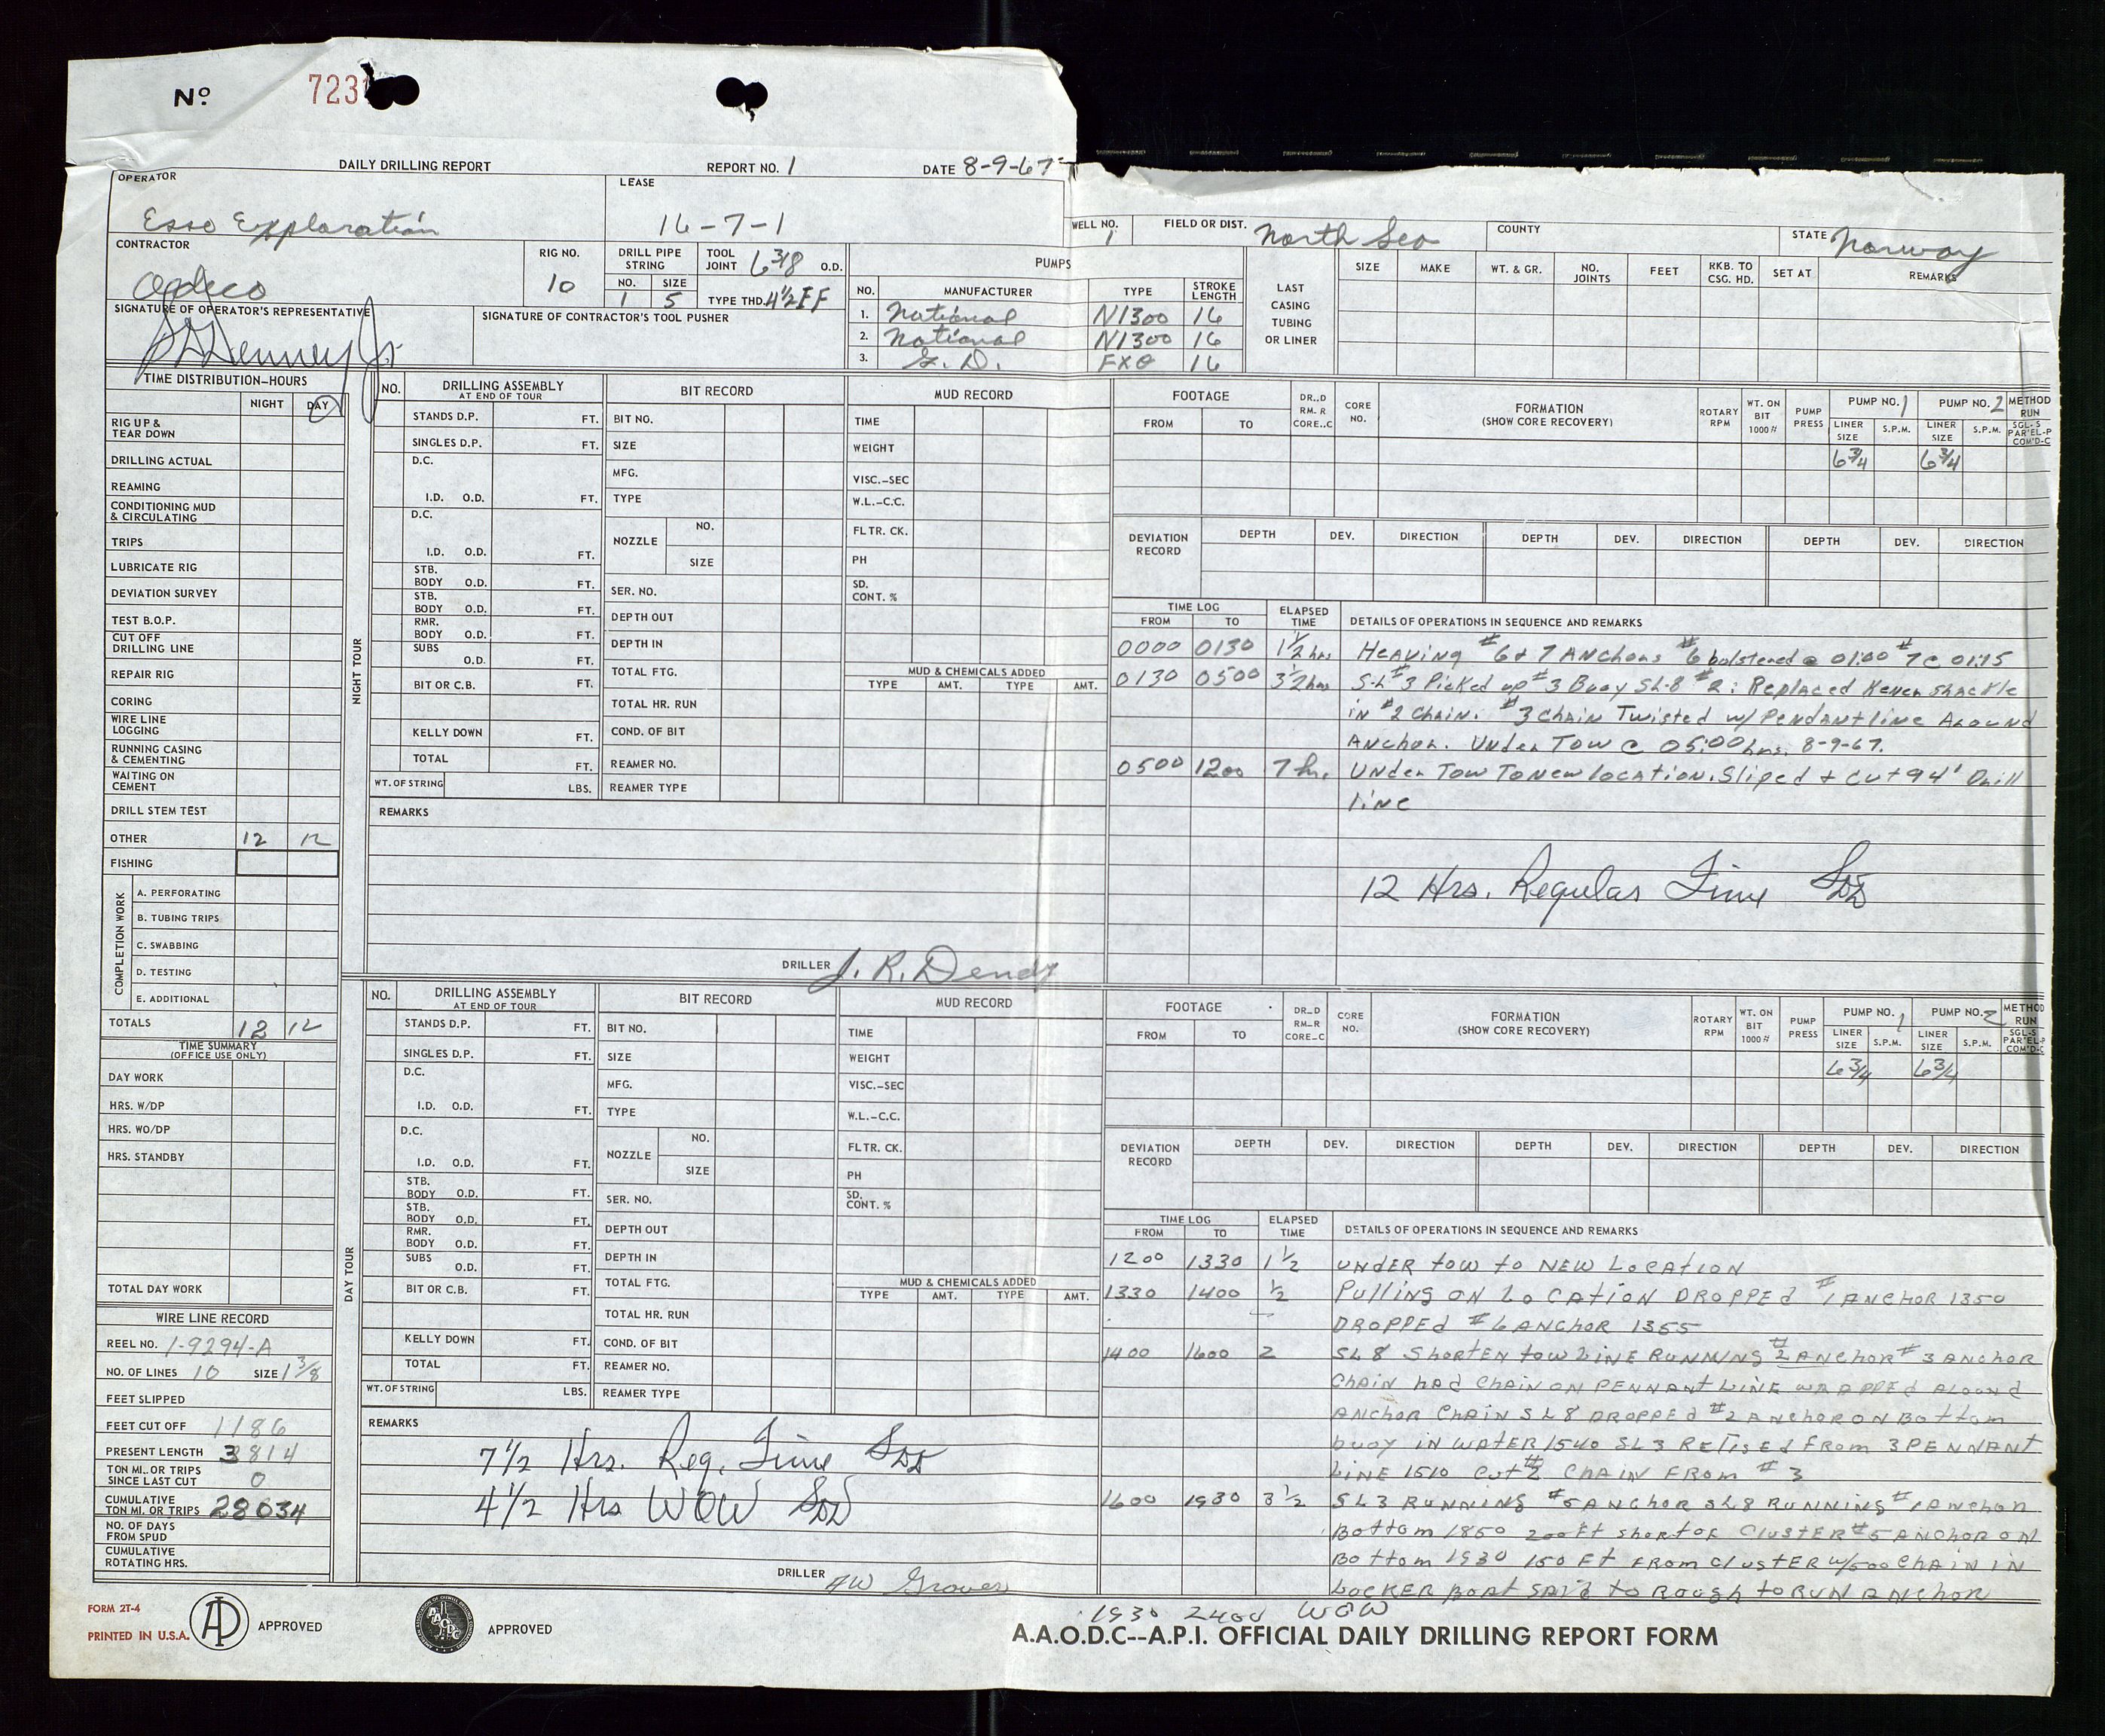 Nº 723
DAILY DRILLING REPORT REPORT NO. 1 DATE 8-9-67
OPERATOR Esso Exploration
LEASE 16-7-1
WELL NO. 1 FIELD OR DIST. North Sea COUNTY STATE Norway
CONTRACTOR Odeco
RIG NO. 10
DRILL PIPE STRING NO. 1 SIZE 5
TOOL JOINT 6 3/8 O.D.
TYPE THD. 4½ IF
SIGNATURE OF OPERATOR'S REPRESENTATIVE
SIGNATURE OF CONTRACTOR'S TOOL PUSHER
PUMPS
NO. MANUFACTURER TYPE STROKE LENGTH
1. National N1300 16
2. National N1300 16
3. G.D. FXO 16
LAST CASING TUBING OR LINER
SIZE MAKE WT. & GR. NO. JOINTS FEET RKB. TO CSG. HD. SET AT REMARKS
TIME DISTRIBUTION–HOURS
NIGHT DAY
RIG UP & TEAR DOWN
DRILLING ACTUAL
REAMING
CONDITIONING MUD & CIRCULATING
TRIPS
LUBRICATE RIG
DEVIATION SURVEY
TEST B.O.P.
CUT OFF DRILLING LINE
REPAIR RIG
CORING
WIRE LINE LOGGING
RUNNING CASING & CEMENTING
WAITING ON CEMENT
DRILL STEM TEST
OTHER 12 12
FISHING
COMPLETION WORK
A. PERFORATING
B. TUBING TRIPS
C. SWABBING
D. TESTING
E. ADDITIONAL
TOTALS 12 12
TIME SUMMARY
(OFFICE USE ONLY)
DAY WORK
HRS. W/DP
HRS. WO/DP
HRS. STANDBY
TOTAL DAY WORK
WIRE LINE RECORD
REEL NO. 1-9294-A
NO. OF LINES 10 SIZE 1 3/8
FEET SLIPPED
FEET CUT OFF 1186
PRESENT LENGTH 3814
TON MI. OR TRIPS SINCE LAST CUT 0
CUMULATIVE TON MI. OR TRIPS 28034
NO. OF DAYS FROM SPUD
CUMULATIVE ROTATING HRS.
NIGHT TOUR
NO. DRILLING ASSEMBLY
AT END OF TOUR
STANDS D.P. FT.
SINGLES D.P. FT.
D.C.
I.D. O.D. FT.
D.C.
I.D. O.D. FT.
STB. BODY O.D. FT.
STB. BODY O.D. FT.
RMR. BODY O.D. FT.
SUBS O.D. FT.
BIT OR C.B. FT.
KELLY DOWN FT.
TOTAL FT.
WT. OF STRING LBS.
BIT RECORD
BIT NO.
SIZE
MFG.
TYPE
NOZZLE NO.
SIZE
SER. NO.
DEPTH OUT
DEPTH IN
TOTAL FTG.
TOTAL HR. RUN
COND. OF BIT
REAMER NO.
REAMER TYPE
MUD RECORD
TIME
WEIGHT
VISC.–SEC
W.L.–C.C.
FLTR. CK.
PH
SD. CONT. %
MUD & CHEMICALS ADDED
TYPE AMT. TYPE AMT.
REMARKS
DRILLER J. R. Dendy
FOOTAGE FROM TO
DR..D RM..R CORE..C
CORE NO.
FORMATION
(SHOW CORE RECOVERY)
ROTARY RPM
WT. ON BIT 1000 #
PUMP PRESS
PUMP NO. 1 LINER SIZE S.P.M.
PUMP NO. 2 LINER SIZE S.P.M.
METHOD RUN SGL-S PAR'EL-P COM'D-C
6 3/4 6 3/4
DEVIATION RECORD
DEPTH DEV. DIRECTION DEPTH DEV. DIRECTION DEPTH DEV. DIRECTION
TIME LOG FROM TO ELAPSED TIME DETAILS OF OPERATIONS IN SEQUENCE AND REMARKS
0000 0130 1½ hrs Heaving #6 + 7 Anchors #6 bolstered @ 01:00 #7 @ 01:15
0130 0500 3½ hrs S-L #3 Picked up #3 Buoy SL-8 #2: Replaced Kenter shackle
in #2 chain. #3 chain Twisted w/ Pendant line Around
Anchor. Under Tow @ 05:00 hrs. 8-9-67.
0500 1200 7 hr. Under Tow To new location. Sliped + cut 94' Drill
line
12 Hrs. Regular Time
DAY TOUR
NO. DRILLING ASSEMBLY
AT END OF TOUR
STANDS D.P. FT.
SINGLES D.P. FT.
D.C.
I.D. O.D. FT.
D.C.
I.D. O.D. FT.
STB. BODY O.D. FT.
STB. BODY O.D. FT.
RMR. BODY O.D. FT.
SUBS O.D. FT.
BIT OR C.B. FT.
KELLY DOWN FT.
TOTAL FT.
WT. OF STRING LBS.
BIT RECORD
BIT NO.
SIZE
MFG.
TYPE
NOZZLE NO.
SIZE
SER. NO.
DEPTH OUT
DEPTH IN
TOTAL FTG.
TOTAL HR. RUN
COND. OF BIT
REAMER NO.
REAMER TYPE
MUD RECORD
TIME
WEIGHT
VISC.–SEC
W.L.–C.C.
FLTR. CK.
PH
SD. CONT. %
MUD & CHEMICALS ADDED
TYPE AMT. TYPE AMT.
REMARKS
7½ Hrs. Reg. Time
4½ Hrs WOW
DRILLER AW Graves
FOOTAGE FROM TO
DR..D RM..R CORE..C
CORE NO.
FORMATION
(SHOW CORE RECOVERY)
ROTARY RPM
WT. ON BIT 1000 #
PUMP PRESS
PUMP NO. 1 LINER SIZE S.P.M.
PUMP NO. 2 LINER SIZE S.P.M.
METHOD RUN SGL-S PAR'EL-P COM'D-C
6 3/4 6 3/4
DEVIATION RECORD
DEPTH DEV. DIRECTION DEPTH DEV. DIRECTION DEPTH DEV. DIRECTION
TIME LOG FROM TO ELAPSED TIME DETAILS OF OPERATIONS IN SEQUENCE AND REMARKS
1200 1330 1½ UNDER tow to NEW LOCATION
1330 1400 ½ Pulling ON LOCATION DROPPED #1 ANCHOR 1350
DROPPEd #6 ANCHOR 1355
1400 1600 2 SL 8 ShortEN tow LINE RUNNING #2 ANCHOR #3 ANCHOR
Chain had Chain ON PENNANT LINE WRAPPEd AROUND
ANCHOR Chain SL8 DROPPEd #2 ANchOR ON Bottom
buoy IN WATER 1540 SL 3 RELISEd FROM 3 PENNANT
LINE 1510 Cut #2 ChAIN FROM #3
1600 1930 3½ SL3 RUNNING #5 ANCHOR SL8 RUNNING #1 ANCHOR
Bottom 1850 200 Ft short OF CLUSTER #5 ANCHOR ON
Bottom 1930 150 Ft FROM CLUSTER w/500 ChAIN IN
LOCKER BOAT SAId tO ROUGH tO RUN ANCHOR
1930 2400 WOW
FORM 2T-4
PRINTED IN U.S.A.
API APPROVED
AAODC APPROVED
A.A.O.D.C--A.P.I. OFFICIAL DAILY DRILLING REPORT FORM